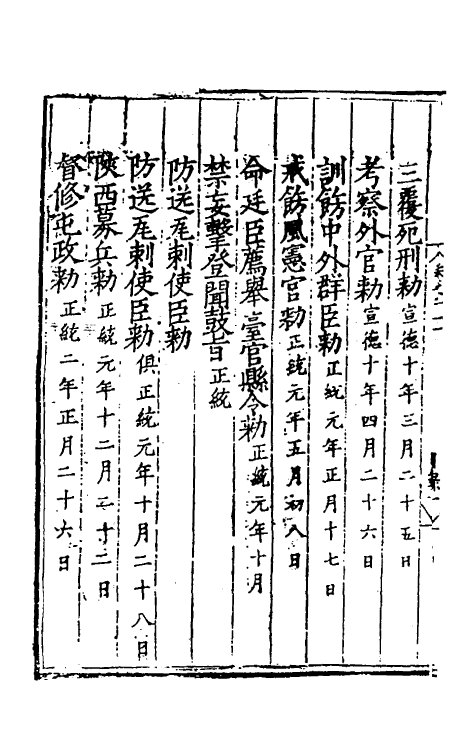 三覆死刑勅 宣德十年三月二十五日
考察外官勅 宣德十年四月二十六日
訓飭中外群臣勅 正統元年正月十七日
戒飭風憲官勅 正統元年五月初八日
命廷臣薦舉臺官縣令勅 正統元年十月
禁妄擊登聞鼓旨 正統
防送瓦剌使臣勅
防送瓦剌使臣勅 俱正統元年十月二十八日
陝西募兵勅 正統元年十二月二十二日
督修屯政勅 正統二年正月二十六日